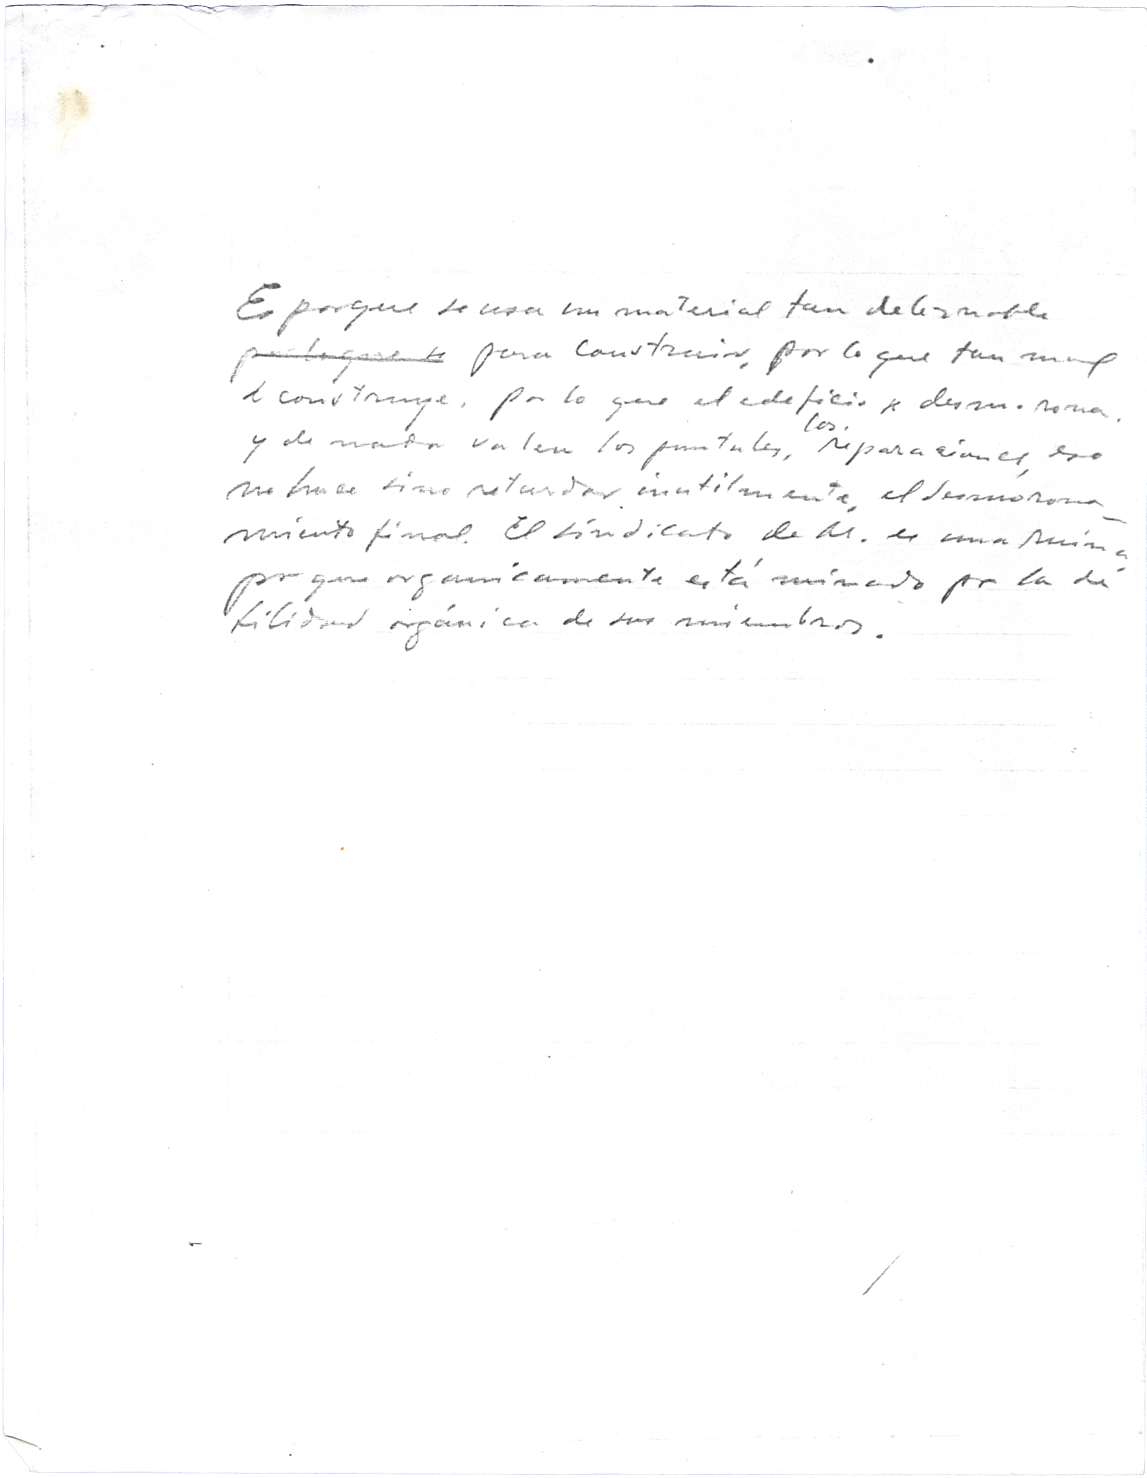 Es porque se usa un material tan deleznable
por lo que se para construir, por lo que tan mal
se construye, por lo que el edificio se desmorona,
y de nada valen los puntales, los reparaciones, eso
no hace sino retardar inutilmente, el desmorona_
miento final. El sindicato de M. es una ruina
porque organicamente está minado por la de
bilidad orgánica de sus miembros.